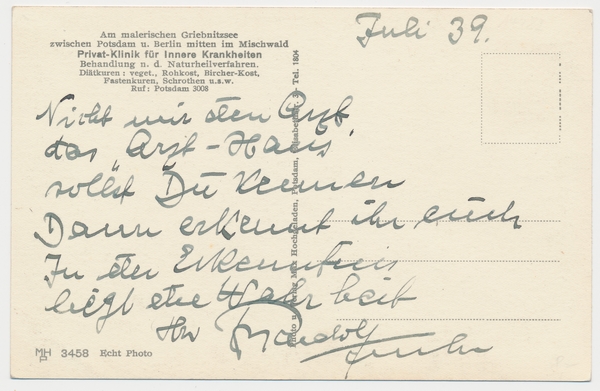 Am malerischen Griebnitzsee
zwischen Potsdam u. Berlin mitten im Mischwald
Privat-Klinik für Innere Krankheiten
Behandlung n. d. Naturheilverfahren.
Diätkuren: veget., Rohkost, Bircher-Kost,
Fastenkuren, Schrothen u.s.w.
Ruf: Potsdam 3008
Juli 39.
Nicht nur den Arzt
das „Arzt-Haus"
sollst Du kennen
Dann erkennt ihr euch
In der Erkenntnis
liegt die Wahrheit
Ihr
Photo u. Verlag Max Hochstaden, Potsdam, Tel. 1804
MHP 3458 Echt Photo